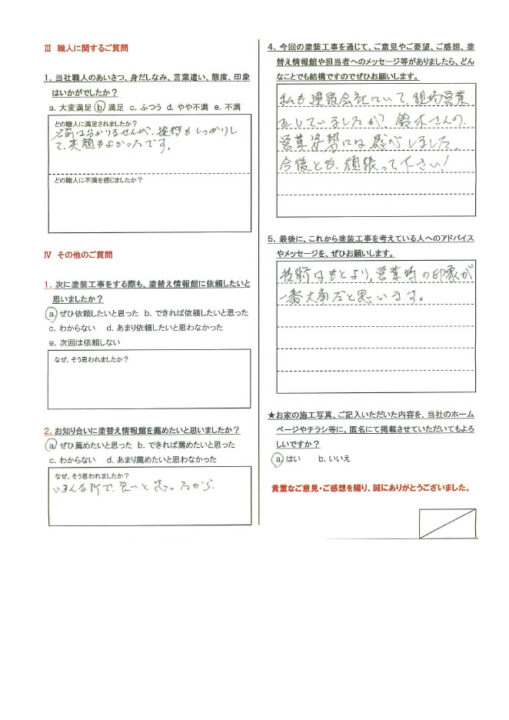 Ⅲ 職人に関するご質問
1. 当社職人のあいさつ、身だしなみ、言葉遣い、態度、印象
はいかがでしたか?
a. 大変満足 b. 満足 c. ふつう d. やや不満 e. 不満
どの職人に満足されましたか?
名前は分かりませんが、挨拶もしっかりし
て、笑顔もよかったです。
どの職人に不満を感じましたか?
Ⅳ その他のご質問
1. 次に塗装工事をする際も、塗替え情報館に依頼したいと
思いましたか?
a. ぜひ依頼したいと思った b. できれば依頼したいと思った
c. わからない d. あまり依頼したいと思わなかった
e. 次回は依頼しない
なぜ、そう思われましたか?
2. お知り合いに塗替え情報館を薦めたいと思いましたか?
a. ぜひ薦めたいと思った b. できれば薦めたいと思った
c. わからない d. あまり薦めたいと思わなかった
なぜ、そう思われましたか?
いろんな所で、良いと思ったから
4. 今回の塗装工事を通じて、ご意見やご要望、ご感想、塗
替え情報館や担当者へのメッセージ等がありましたら、どん
なことでも結構ですのでぜひお願いします。
私も建設会社にいて、現場営業
をしていましたが、鈴木さんの
営業姿勢には感心しました。
今後とも、頑張って下さい!
5. 最後に、これから塗装工事を考えている人へのアドバイス
やメッセージを、ぜひお願いします。
技術はもとより、営業時の印象が
一番大事だと思います。
★お家の施工写真、ご記入いただいた内容を、当社のホーム
ページやチラシ等に、匿名にて掲載させていただいてもよろ
しいですか?
a. はい b. いいえ
貴重なご意見・ご感想を賜り、誠にありがとうございました。